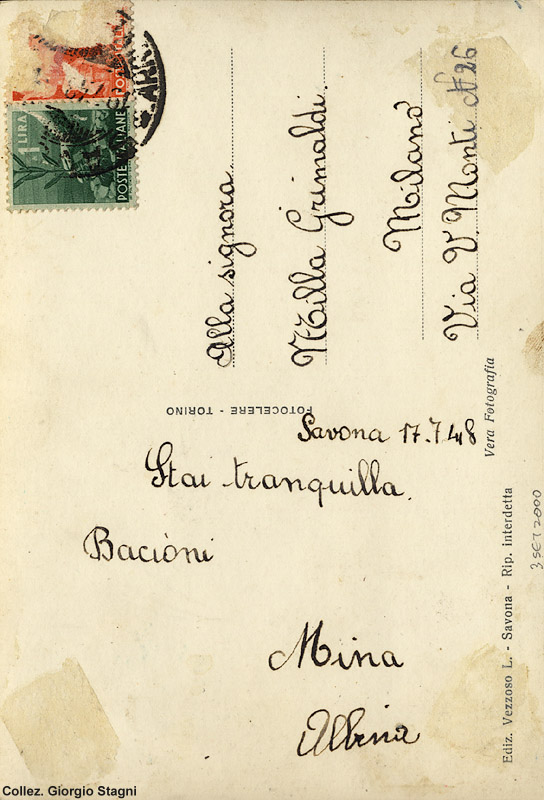 POSTE ITALIANE
1 LIRA
POSTE ITALIANE
Alla signora
Milla Grimaldi.
Milano
Via V. Monti N 26
FOTOCELERE - TORINO
Savona 17.7.48
Stai tranquilla.
Bacioni
Mina
Albina
Vera Fotografia
Ediz. Vezzoso L. - Savona - Rip. interdetta
3 SET 2000
Collez. Giorgio Stagni